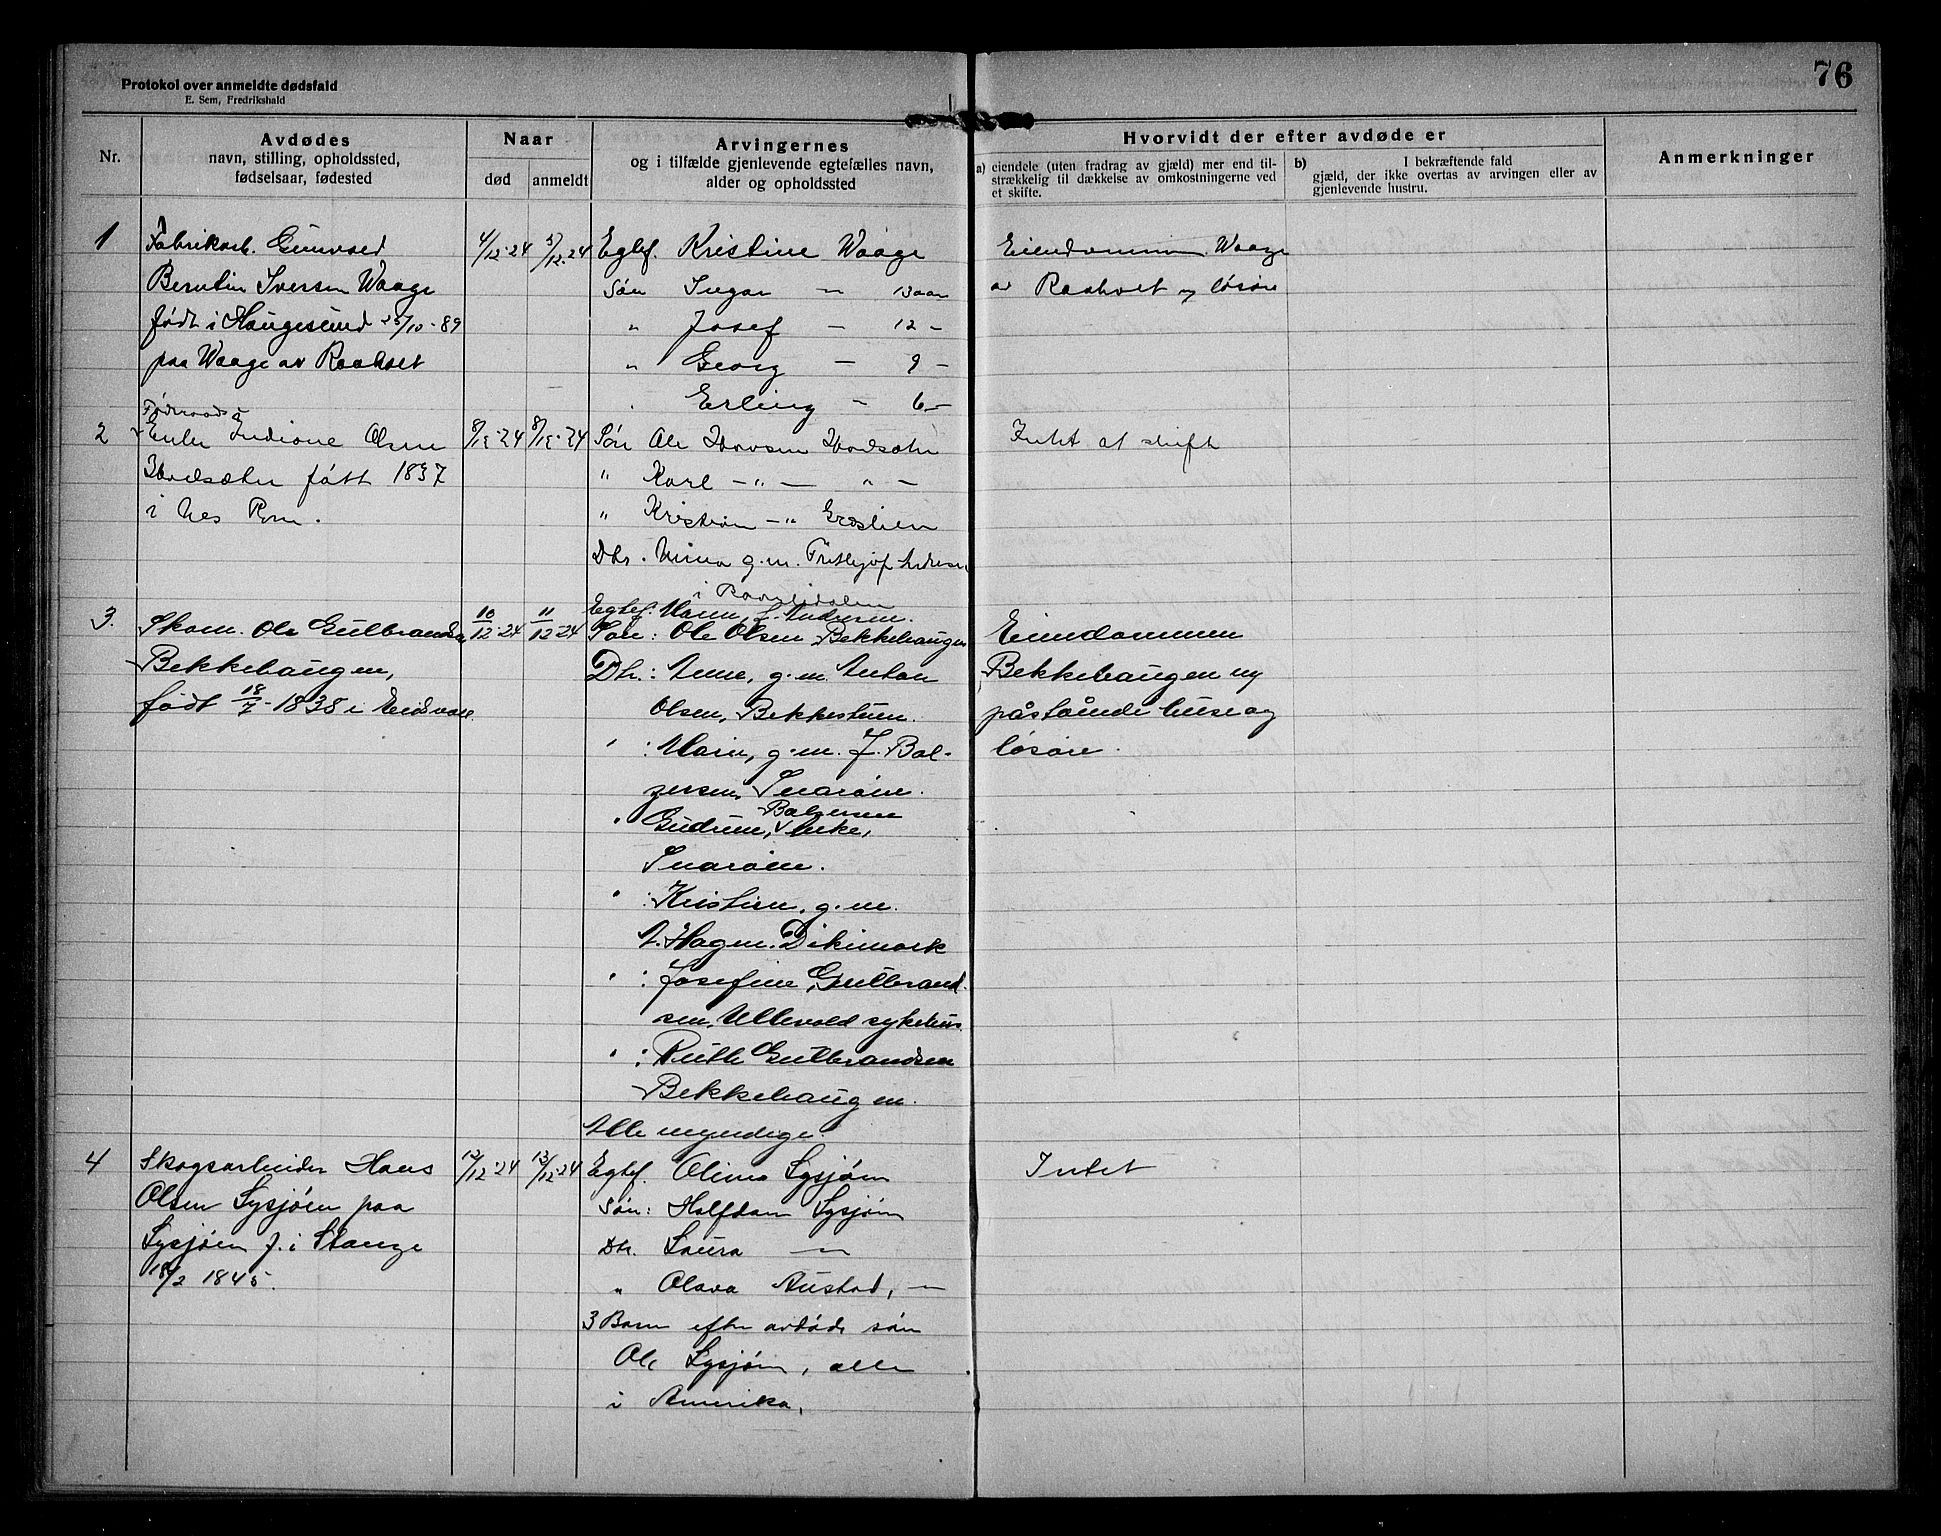 76
Protokol over anmeldte dødsfald
E. Sem, Fredrikshald
Nr.
Avdødes
navn, stilling, opholdssted,
fødselsaar, fødested
Naar
død anmeldt
Arvingernes
og i tilfælde gjenlevende egtefælles navn,
alder og opholdssted
Hvorvidt der efter avdøde er
a) eiendele (uten fradrag av gjæld) mer end til-
strækkelig til dækkelse av omkostningerne ved
et skifte.
b) I bekræftende fald
gjæld, der ikke overtas av arvingen eller av
gjenlevende hustru.
Anmerkninger
1
Fabrikarb.
Berntin Iversen Waage
født i Haugesund 25/10-89
paa Waage av Raaholt
4/12-24 5/12-24
Egtef. Kristine Waage
Søn Ingar — 13 aar
" Josef — 12 —
" Georg — 9 —
Erling — 6 —
Eiendommen Waage
av Raaholt og løsøre
2
Føderaads
Enke Indiane Olsen
født 1837
i Nes Rom.
8/12-24 8/12-24
Søn Ole
" Karl — " — " —
" Kristian — "
Dtr. g.m. Frithjof
i
Intet at skifte
3.
Skom. Ole Gulbrandsen
Bekkehaugen,
født 18/7-1838 i Eidsvoll
10/12-24 11/12-24
Egtef. Maren L. Andersen.
Søn: Ole Olsen Bekkehaugen
Dtr.: Anne, g.m. Anton
Olsen, Bekkestuen.
" : Marie, g.m. J. Bal-
zersen, Snarøen.
Balzersen
" Gudrun, enke,
Snarøen.
" : Kristine, g.m.
A. Hagen. Dikimark
" : Josefine Gulbrand-
sen, Ullevold sykehus
" : Ruth Gulbrandsen
Bekkehaugen.
Alle myndige.
Eiendommen
Bekkehaugen og
påstående huse og
løsøre.
4
Skogsarbeider Hans
Olsen Sysjøen paa
Sysjøen f. i Stange
18/2 1845.
12/12-24 13/12-24
Egtef. Olina Sysjøen
Søn: Halfdan Sysjøen
Dtr. Laura —"—
" Olava Austad, —"—
3 Barn efter avdøde søn
Ole Sysjøen, alle
i Amerika.
Intet